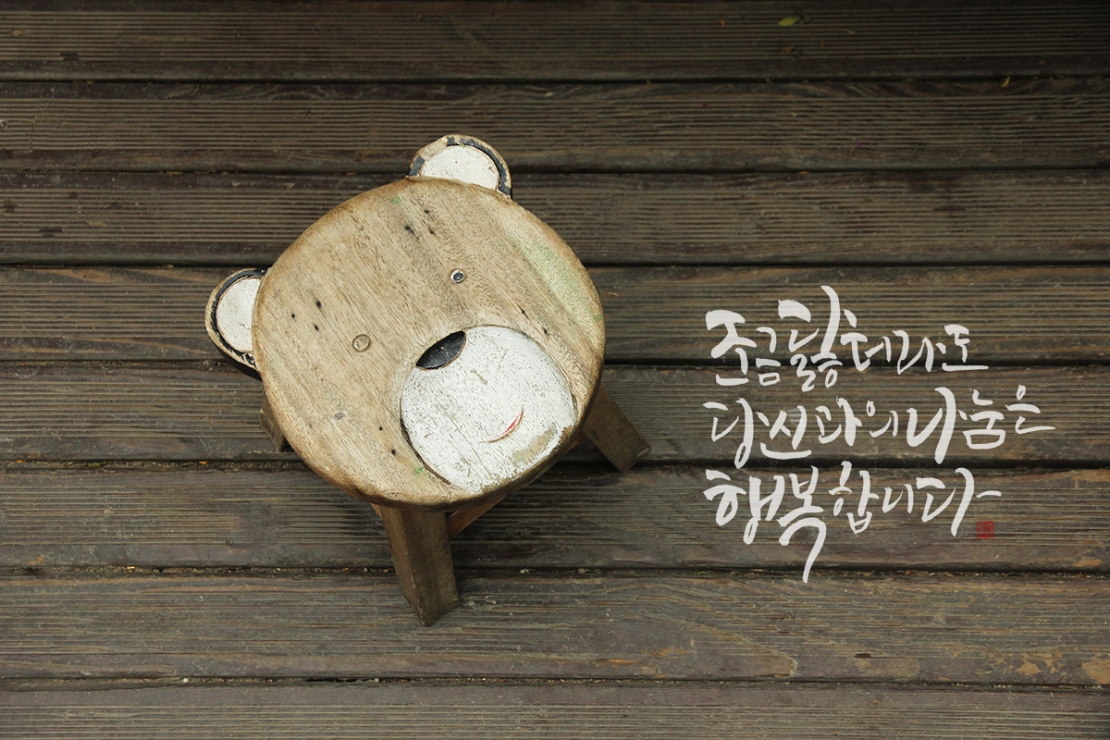 조금 닳더라도
당신과의 나눔은
행복합니다